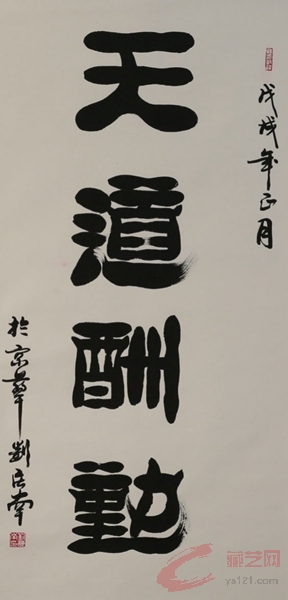 戊戌年正月
天道酬勤
於京華
藏艺网
ys121.com